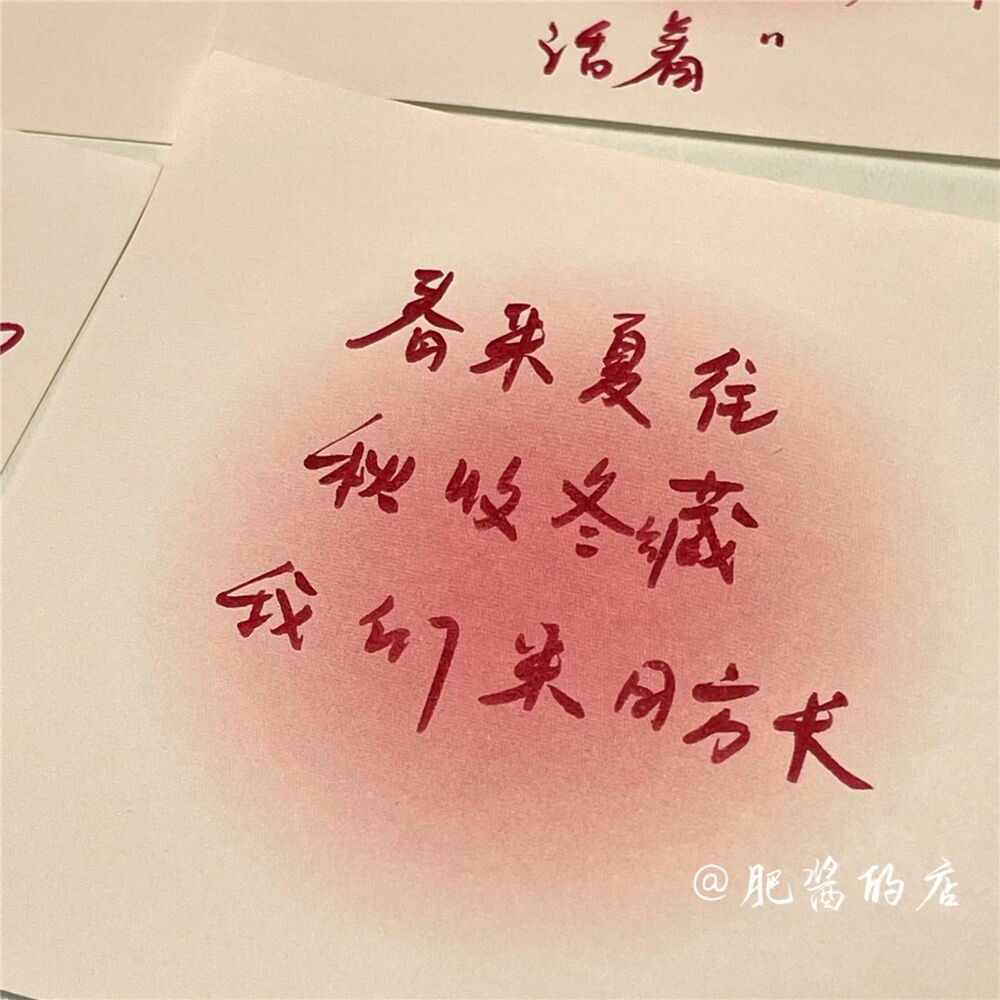 活着"
春来夏往
秋收冬藏
我们来日方长
@肥酱的店